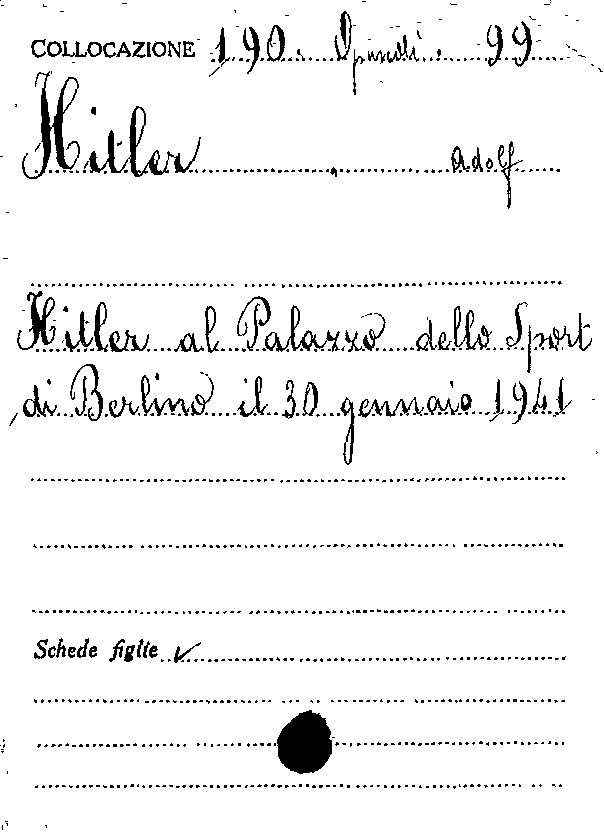 COLLOCAZIONE 190. Opuscoli. 99
Hitler, Adolf
Hitler al Palazzo dello Sport
di Berlino il 30 gennaio 1941
Schede figlie ✓